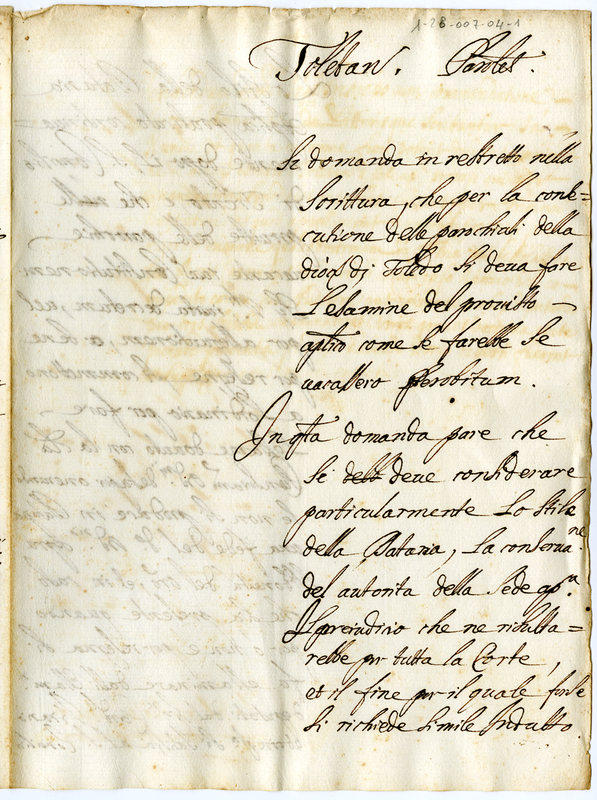 1-28-007-04-1
Toletan. Paroles.
Se domanda in restretto nella
Scrittura, che per la conse=
cutione delle parochiali della
dioc̄s di Toledo si deva fare
L'esamine del provisto —
ap̄lico come se farebbe se
vacassero per obitum.
In q̄ta domanda pare che
Si debb deve considerare
particularmente Lo stile
della Dataria, La conserva.ne
del autorità della Sede ap.ca
Il preiudicio che ne risulta=
rebbe pr tutta la Corte,
et il fine pr il quale forse
si richiede simile Indulto